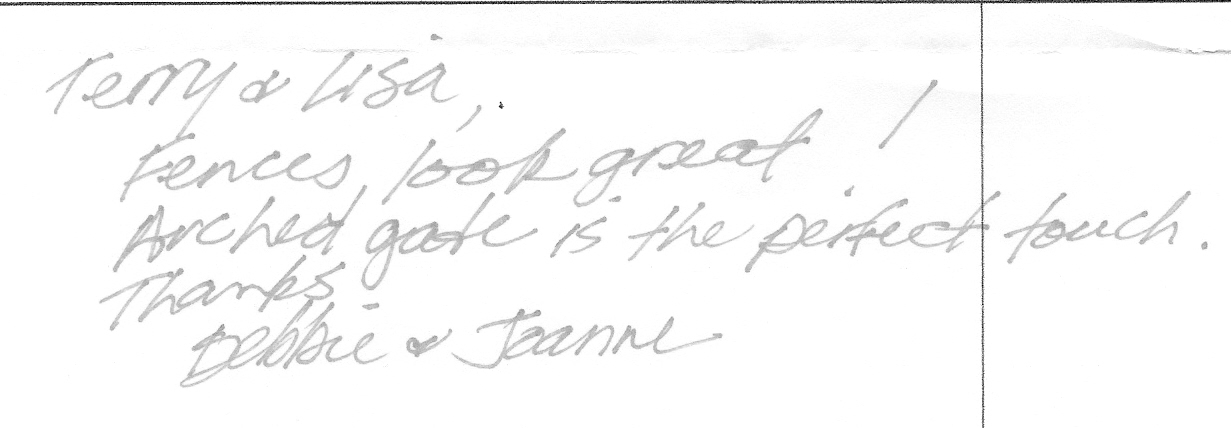 Terry & Lisa,
Fences, look great!
Arched gate is the perfect touch.
Thanks
Debbie & Joanne